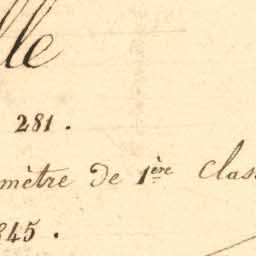 lle
281.
mètre de 1ère Clas
845.